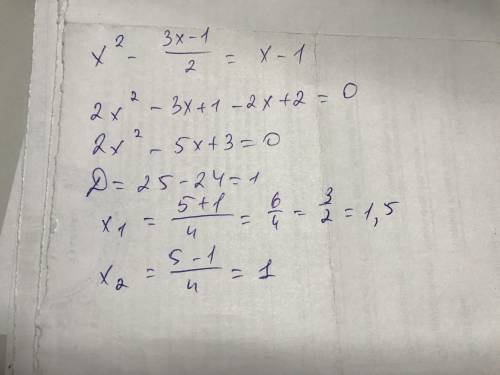 x² - (3x-1)/2 = x - 1
2x² - 3x+1 - 2x+2 = 0
2x² - 5x+3 = 0
D = 25 - 24 = 1
x₁ = (5+1)/4 = 6/4 = 3/2 = 1,5
x₂ = (5-1)/4 = 1